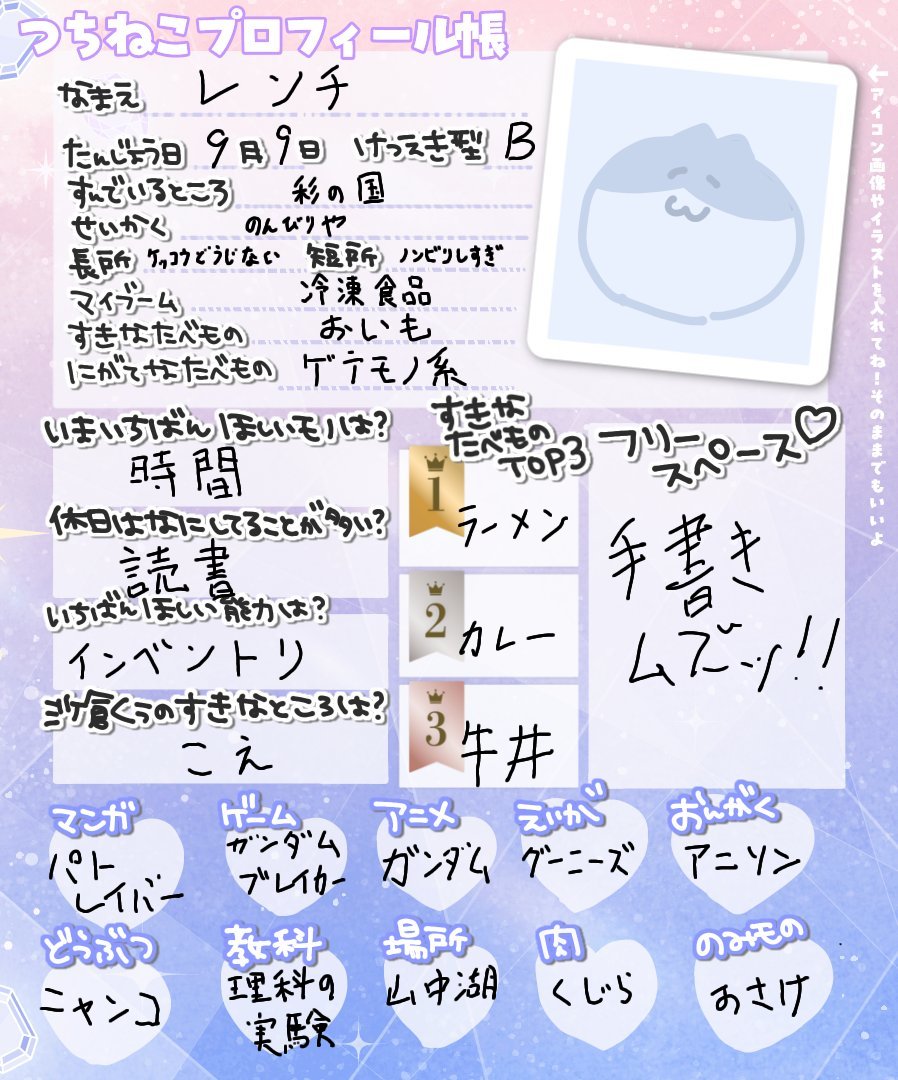 つちねこプロフィール帳
なまえ レンチ
たんじょう日 9月9日 けつえき型 B
すんでいるところ 彩の国
せいかく のんびりや
長所 ケッコウどうじない 短所 ノンビリしすぎ
マイブーム 冷凍食品
すきなたべもの おいも
にがてなたべもの ゲテモノ系
←アイコン画像やイラストを入れてね!そのままでもいいよ
いまいちばんほしいモノは?
時間
休日はなにしてることが多い?
読書
いちばんほしい能力は?
インベントリ
くうのすきなところは?
こえ
すきな
たべもの
TOP3
1 ラーメン
2 カレー
3 牛丼
フリー
スペース♡
手書き
ムズーッ!!
マンガ
パト
レイバー
ゲーム
ガンダム
ブレイカー
アニメ
ガンダム
えいが
グーニーズ
おんがく
アニソン
どうぶつ
ニャンコ
教科
理科の
実験
場所
山中湖
肉
くじら
のみもの
おさけ